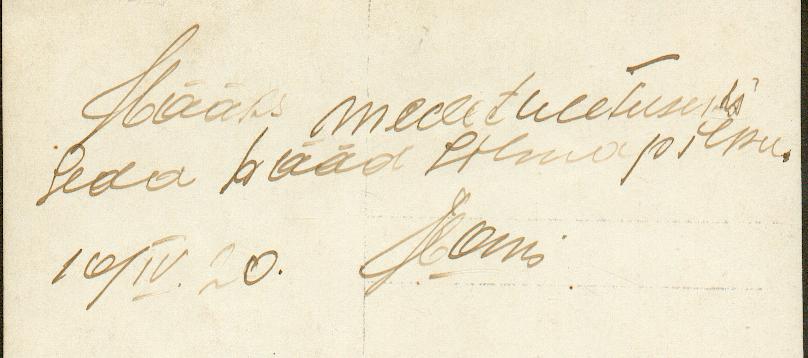 Hääks meeletuletuseks
Seda hääd silmapilku.
10/IV. 20. Hans